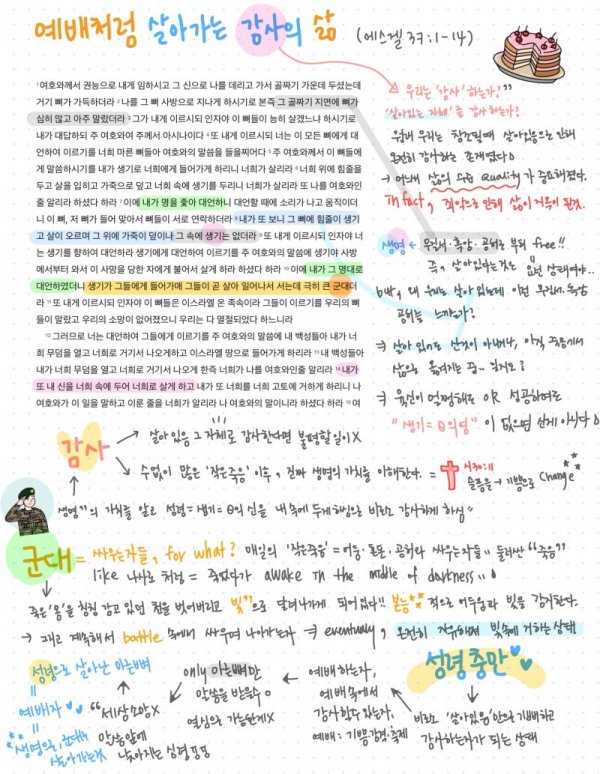 예배처럼 살아가는 감사의 삶 (에스겔 37:1-14)
1 여호와께서 권능으로 내게 임하시고 그 신으로 나를 데리고 가서 골짜기 가운데 두셨는데
거기 뼈가 가득하더라 2 나를 그 뼈 사방으로 지나게 하시기로 본즉 그 골짜기 지면에 뼈가
심히 많고 아주 말랐더라 3 그가 내게 이르시되 인자야 이 뼈들이 능히 살겠느냐 하시기로
내가 대답하되 주 여호와여 주께서 아시나이다 4 또 내게 이르시되 너는 이 모든 뼈에게 대
언하여 이르기를 너희 마른 뼈들아 여호와의 말씀을 들을찌어다 5 주 여호와께서 이 뼈들에
게 말씀하시기를 내가 생기로 너희에게 들어가게 하리니 너희가 살리라 6 너희 위에 힘줄을
두고 살을 입히고 가죽으로 덮고 너희 속에 생기를 두리니 너희가 살리라 또 나를 여호와인
줄 알리라 하셨다 하라 7 이에 내가 명을 좇아 대언하니 대언할 때에 소리가 나고 움직이더
니 이 뼈, 저 뼈가 들어 맞아서 뼈들이 서로 연락하더라 8 내가 또 보니 그 뼈에 힘줄이 생기
고 살이 오르며 그 위에 가죽이 덮이나 그 속에 생기는 없더라 9 또 내게 이르시되 인자야 너
는 생기를 향하여 대언하라 생기에게 대언하여 이르기를 주 여호와의 말씀에 생기야 사방
에서부터 와서 이 사망을 당한 자에게 불어서 살게 하라 하셨다 하라 10 이에 내가 그 명대로
대언하였더니 생기가 그들에게 들어가매 그들이 곧 살아 일어나서 서는데 극히 큰 군대더
라 11 또 내게 이르시되 인자야 이 뼈들은 이스라엘 온 족속이라 그들이 이르기를 우리의 뼈
들이 말랐고 우리의 소망이 없어졌으니 우리는 다 멸절되었다 하느니라
12 그러므로 너는 대언하여 그들에게 이르기를 주 여호와의 말씀에 내 백성들아 내가 너
희 무덤을 열고 너희로 거기서 나오게하고 이스라엘 땅으로 들어가게 하리라 13 내 백성들아
내가 너희 무덤을 열고 너희로 거기서 나오게 한즉 너희가 나를 여호와인줄 알리라 14 내가
또 내 신을 너희 속에 두어 너희로 살게 하고 내가 또 너희를 너희 고토에 거하게 하리니 나
여호와가 이 일을 말하고 이룬 줄을 너희가 알리라 나 여호와의 말이니라 하셨다 하라 15 여
우리는 '감사' 하는가?
'살아있는 자체'로 감사하는가?
원래 우리는 창조될때 살아있음으로 인해
온전히 감사하는 존재였다
→ 어느새 삶의 수준 Quality가 중요해졌다.
In fact, 죄악으로 인해 삶이 저주가 된것.
생명 ← 무질서·흑암·공허로 부터 free!!
즉, 살아있다는것은 요런 상태여야..
but, 왜 우리는 살아있는데 이런 무질서·흑암
공허를 느끼는가?
⇒ 살아 있어도 산것이 아니거나, 아직 죽음에서
삶으로 옮겨지는 중.. 일거고?
⇒ 육신이 멀쩡해도 OR 성공하여도
"생기 = 의 영"이 없으면 산게 아니다
감사
→ 살아 있음 그 자체로 감사한다면 불평할 일이 X
→ 수없이 많은 '작은죽음' 이후, 진짜 생명의 가치를 이해한다. = 시30:11
슬픔을 → 기쁨으로 change
생명"의 가치를 알고 성령 = 생기 = 의 신을 내 속에 두게하심으로 비로소 감사하게 하심"
군대 = 싸우는자들, for what? 매일의 '작은죽음' = 어둠·혼돈·공허와 싸우는자들.. 둘러싼 "죽음"
like 나사로 처럼 = 죽었다가 awake in the middle of darkness..
죽은 '몸'을 칭칭 감고 있던 천을 벗어버리고 빛"으로 달려나가게 되어있다!! 본능적으로 어두움과 빛을 감지한다.
→ 그리고 계속해서 battle 속에서 싸우며 나아가는자 ⇒ eventually, 온전히 자유하며 빛속에 거하는 상태
성령충만
비로소 '살아있음'만으로 기뻐하고
감사하는자가 되는 상태
예배하는자,
예배 속에서
감사할수 있는자,
예배 : 기쁨, 감격, 축제
only 마른뼈만
말씀을 받을수
열심으로 가능한게 X
성령으로 살아난 마른뼈
예배자
"세상소망 X
말씀앞에
낮아지는 심령
"생명으로,
살아가는것